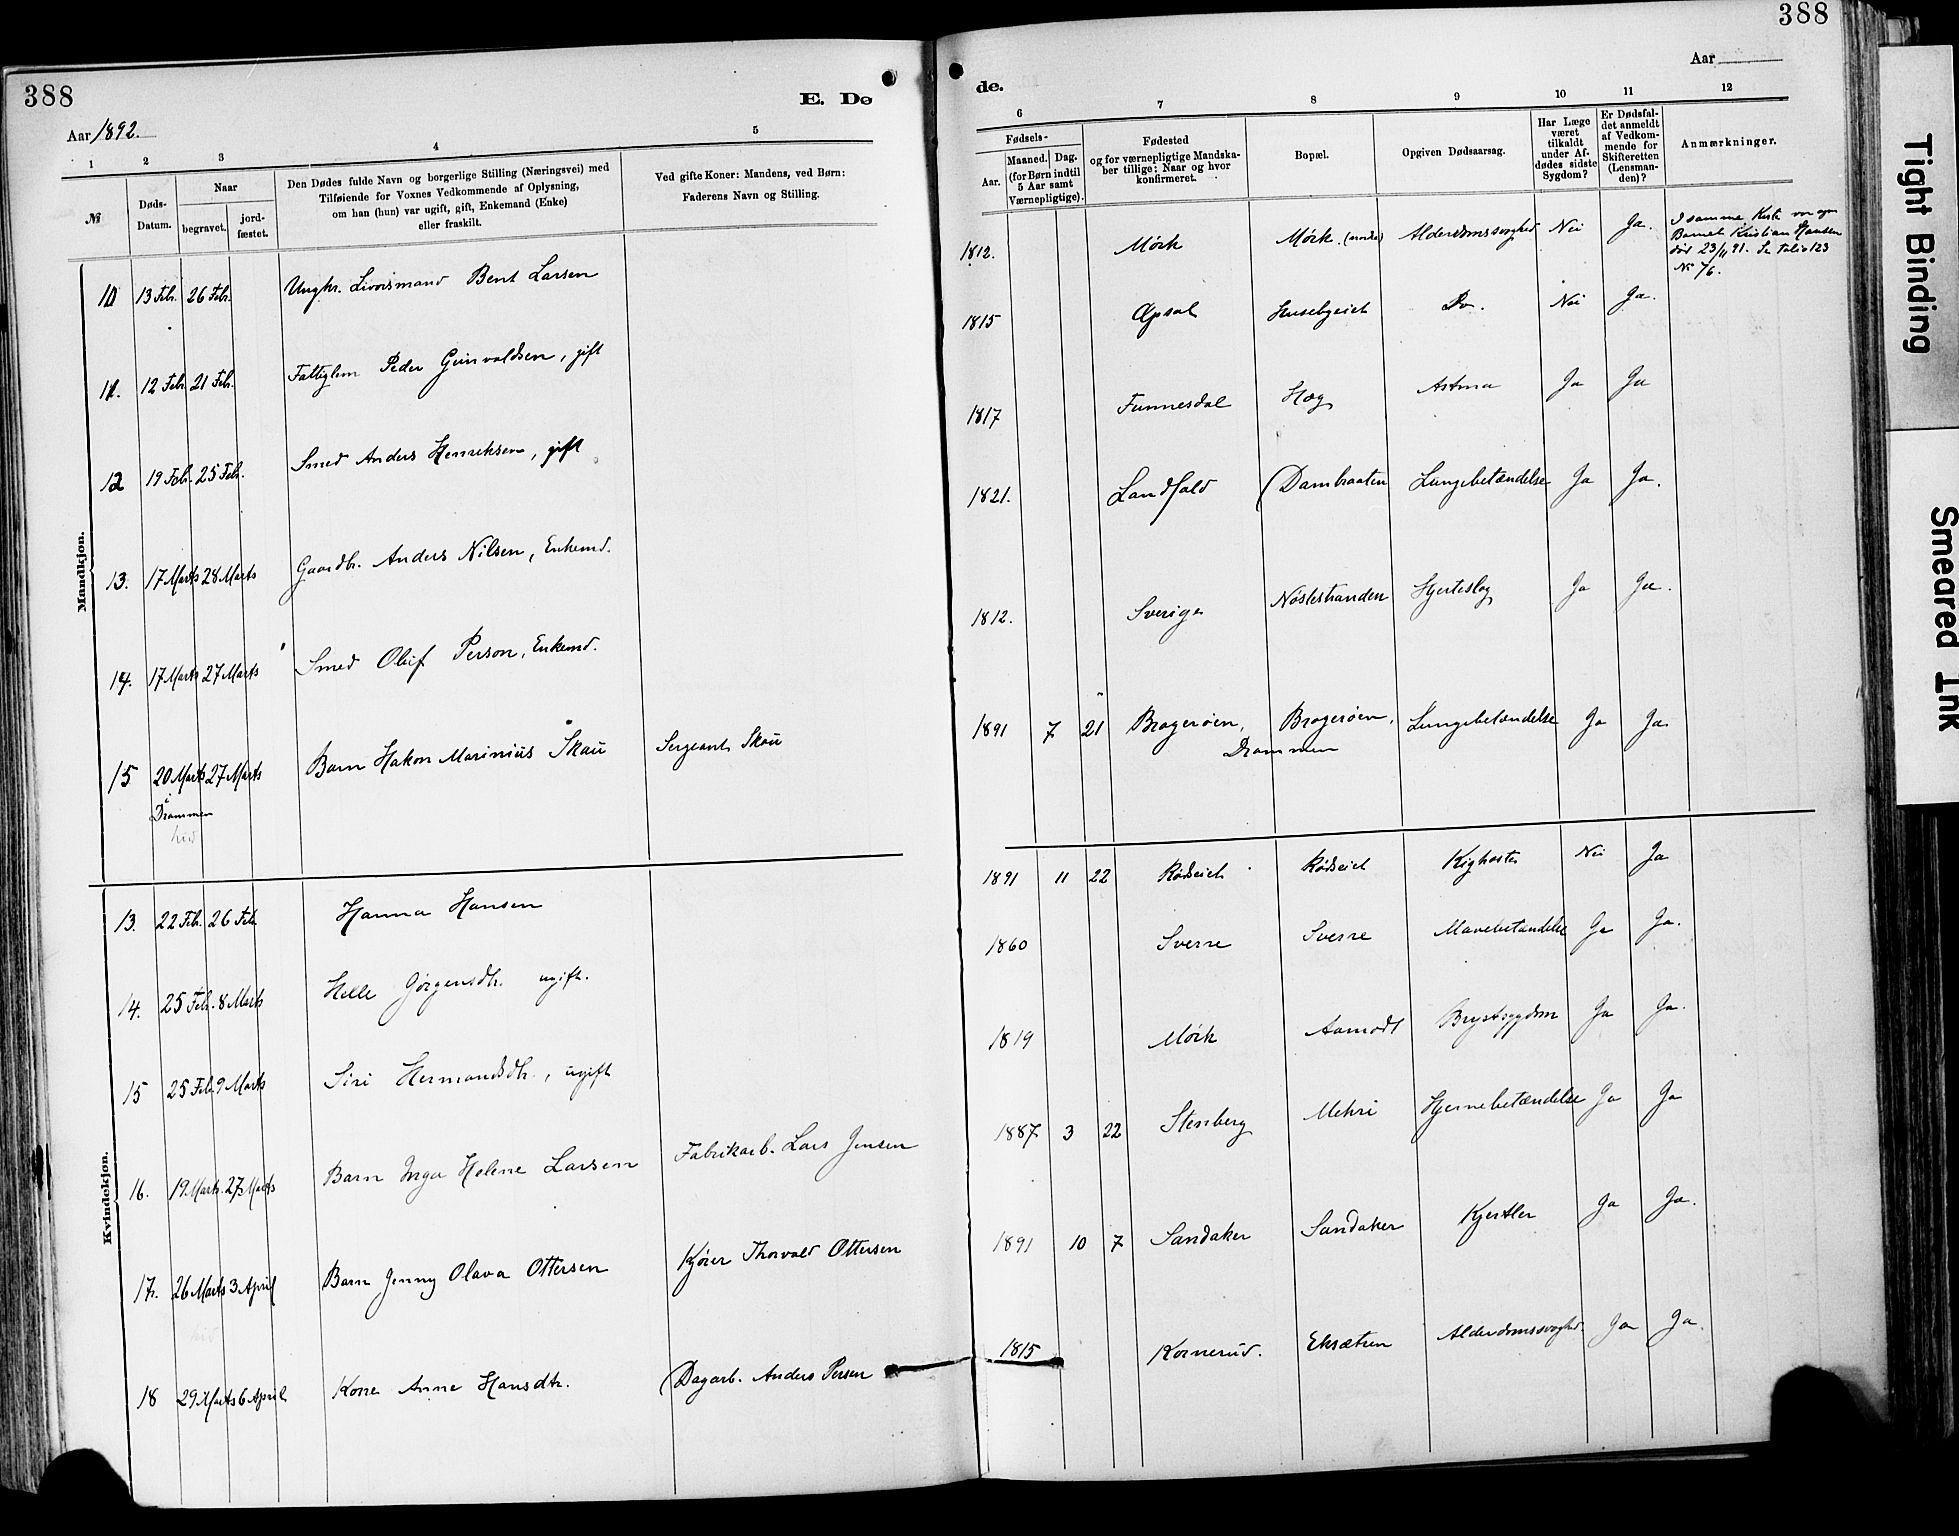 388
E. Dø
Aar 1892.
1 2 3 4 5
№
Døds-Datum.
Naar
begravet.
jord-fæstet.
Den Dødes fulde Navn og borgerlige Stilling (Næringsvei) med
Tilføiende for Voxnes Vedkommende af Oplysning,
om han (hun) var ugift, gift, Enkemand (Enke)
eller fraskilt.
Ved gifte Koner: Mandens, ved Børn:
Faderens Navn og Stilling.
Mandkjøn.
10 13 Feb. 26 Feb. Ungkr. Bent Larsen
11. 12 Feb. 21 Feb. Fattiglem Peder Gunvaldsen, gift
12 19 Feb. 25 Feb. Smed Anders Henriksen, gift
13. 17 Marts 28 Marts Gaardbr. Anders Nilsen, Enkemd.
14. 17 Marts 27 Marts Smed Oluf Person, Enkemd.
15 20 Marts 27 Marts Barn Hakon Marinius Skau Sergeant Skau
i
Drammen
hid
Kvindekjøn.
13. 22 Feb. 26 Feb. Hanna Hansen
14. 25 Feb. 8 Marts Helle Jørgensdtr. ugift.
15 25 Feb. 9 Marts Siri Hermandsdtr., ugift
16. 19. Marts. 27 Marts Barn Inga Helene Larsen Fabrikarb. Lars Jensen
17. 26 Marts 3 April Barn Jenny Olava Ottersen Kjører Thorvald Ottersen
hid
18 29 Marts 6 April Kone Anne Hansdtr. Dagarb. Anders Persen
388
de.
Aar
6 7 8 9 10 11 12
Fødsels-
Aar.
Maaned. Dag.
(for Børn indtil
5 Aar samt
Værnepligtige).
Fødested
og for værnepligtige Mandska-
ber tillige: Naar og hvor
konfirmeret.
Bopæl.
Opgiven Dødsaarsag.
Har Læge
været
tilkaldt
under Af-
dødes sidste
Sygdom?
Er Dødsfal-
det anmeldt
af Vedkom-
mende for
Skifteretten
(Lensman-
den)?
Anmærkninger.
1812. Mørk Mørk (nordre) Alderdomssvaghed Nei Ja. I samme Kiste var og
Barnet Kristian Hansen
død 23/11 91. Se folio 123
№ 76.
1815 Opsal Husebyeiet Do. Nei Ja.
1817 Funnesdal Hæg Astma Ja Ja
1821. Landfald Dambraaten Lungebetændelse Ja Ja.
1812. Sverige Nøstestranden Hjerteslag Ja Ja.
1891 7 21 Bragerøen, Bragerøen, Lungebetændelse Ja Ja
Drammen
1891 11 22 Rødseiet Rødseiet Kighoste Nei Ja
1860 Sverre Sverre Mavebetændelse Ja Ja.
1819 Mørk Aamodt Brystsygdom Ja Ja.
1887 3 22 Stenberg Mehri Hjernebetændelse Ja Ja
1891 10 7 Sandaker Sandaker Kjertler Ja Ja.
1815 Kornerud. Eksætren Alderdomssvaghed Ja Ja.
Tight Binding
Smeared Ink